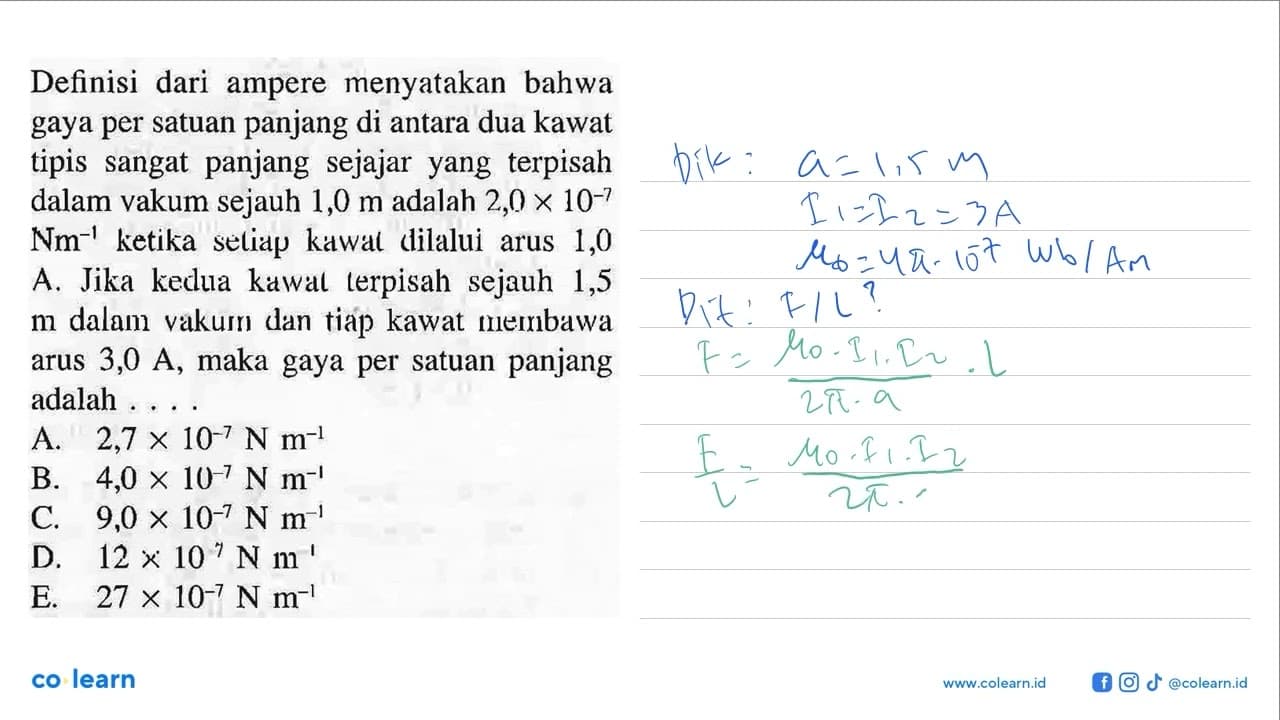 Definisi dari ampere menyatakan bahwa
gaya per satuan panjang di antara dua kawat
tipis sangat panjang sejajar yang terpisah
dalam vakum sejauh 1,0 m adalah 2,0 × 10⁻⁷
Nm⁻¹ ketika setiap kawat dilalui arus 1,0
A. Jika kedua kawat terpisah sejauh 1,5
m dalam vakum dan tiap kawat membawa
arus 3,0 A, maka gaya per satuan panjang
adalah . . . .
A. 2,7 × 10⁻⁷ N m⁻¹
B. 4,0 × 10⁻⁷ N m⁻¹
C. 9,0 × 10⁻⁷ N m⁻¹
D. 12 × 10⁻⁷ N m⁻¹
E. 27 × 10⁻⁷ N m⁻¹
Dik: a = 1,5 m
I1 = I2 = 3A
μ0 = 4π · 10⁻⁷ Wb/Am
Dit: F/L?
F = μ0 · I1 · I2 / 2π · a · L
F/L = μ0 · I1 · I2 / 2π ·
co learn
www.colearn.id
@colearn.id